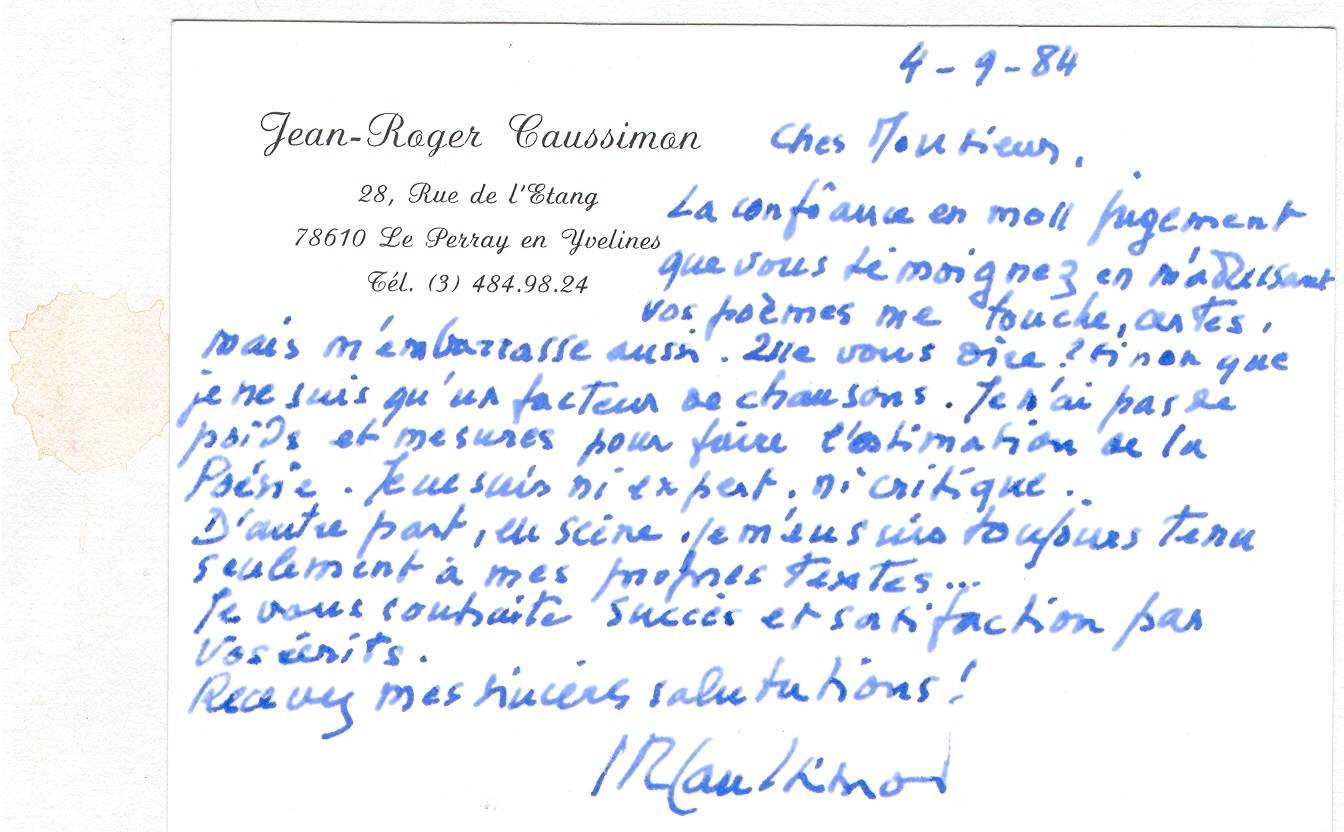 4-9-84
Jean-Roger Caussimon
28, Rue de l'Etang
78610 Le Perray en Yvelines
Tél. (3) 484.98.24
Cher Monsieur,
La confiance en mon jugement
que vous témoignez en m'adressant
vos poèmes me touche, certes,
mais m'embarrasse aussi. Que vous dire ? sinon que
je ne suis qu'un facteur de chansons. Je n'ai pas de
poids et mesures pour faire l'estimation de la
Poésie. Je ne suis ni expert, ni critique.
D'autre part, en scène, je m'en suis toujours tenu
seulement à mes propres textes...
Je vous souhaite succès et satisfaction par
vos écrits.
Recevez mes sincères salutations !
JRCaussimon